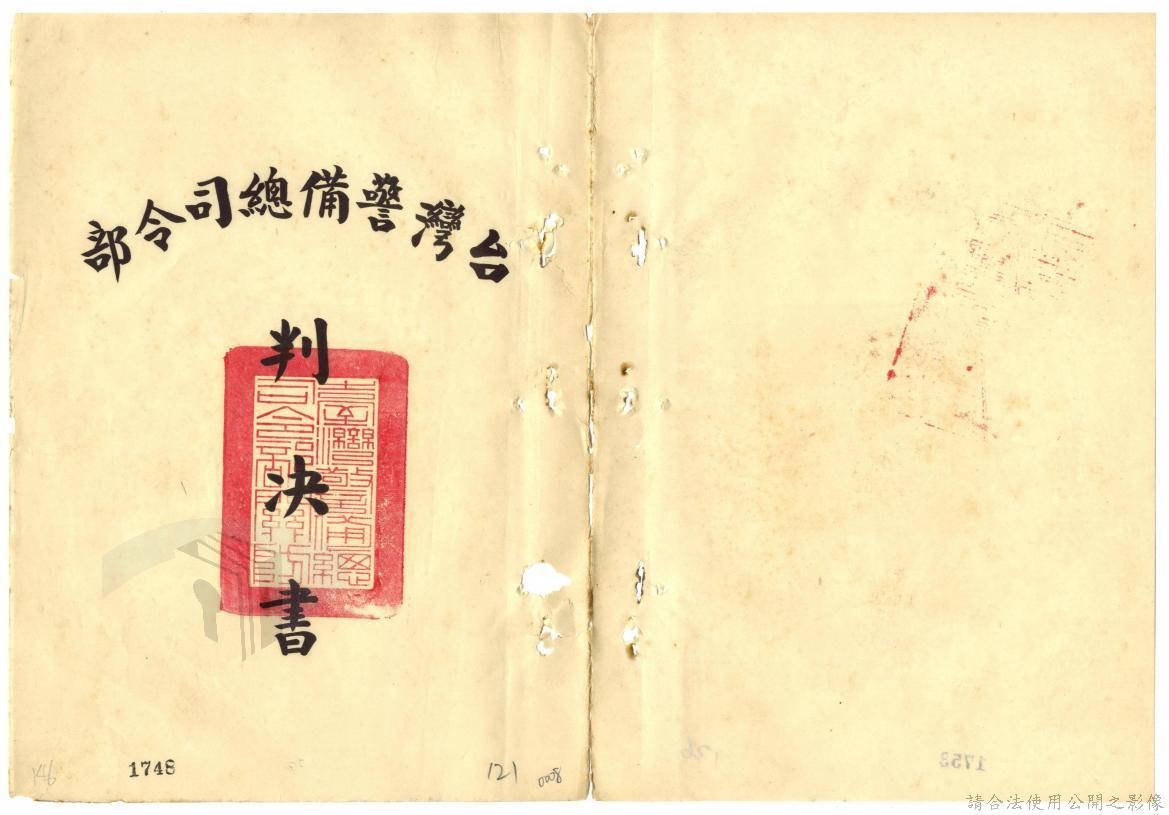 台灣警備總司令部
判決書
臺灣警備總
司令部
146
1748
121
0008
1753
請合法使用公開之影像